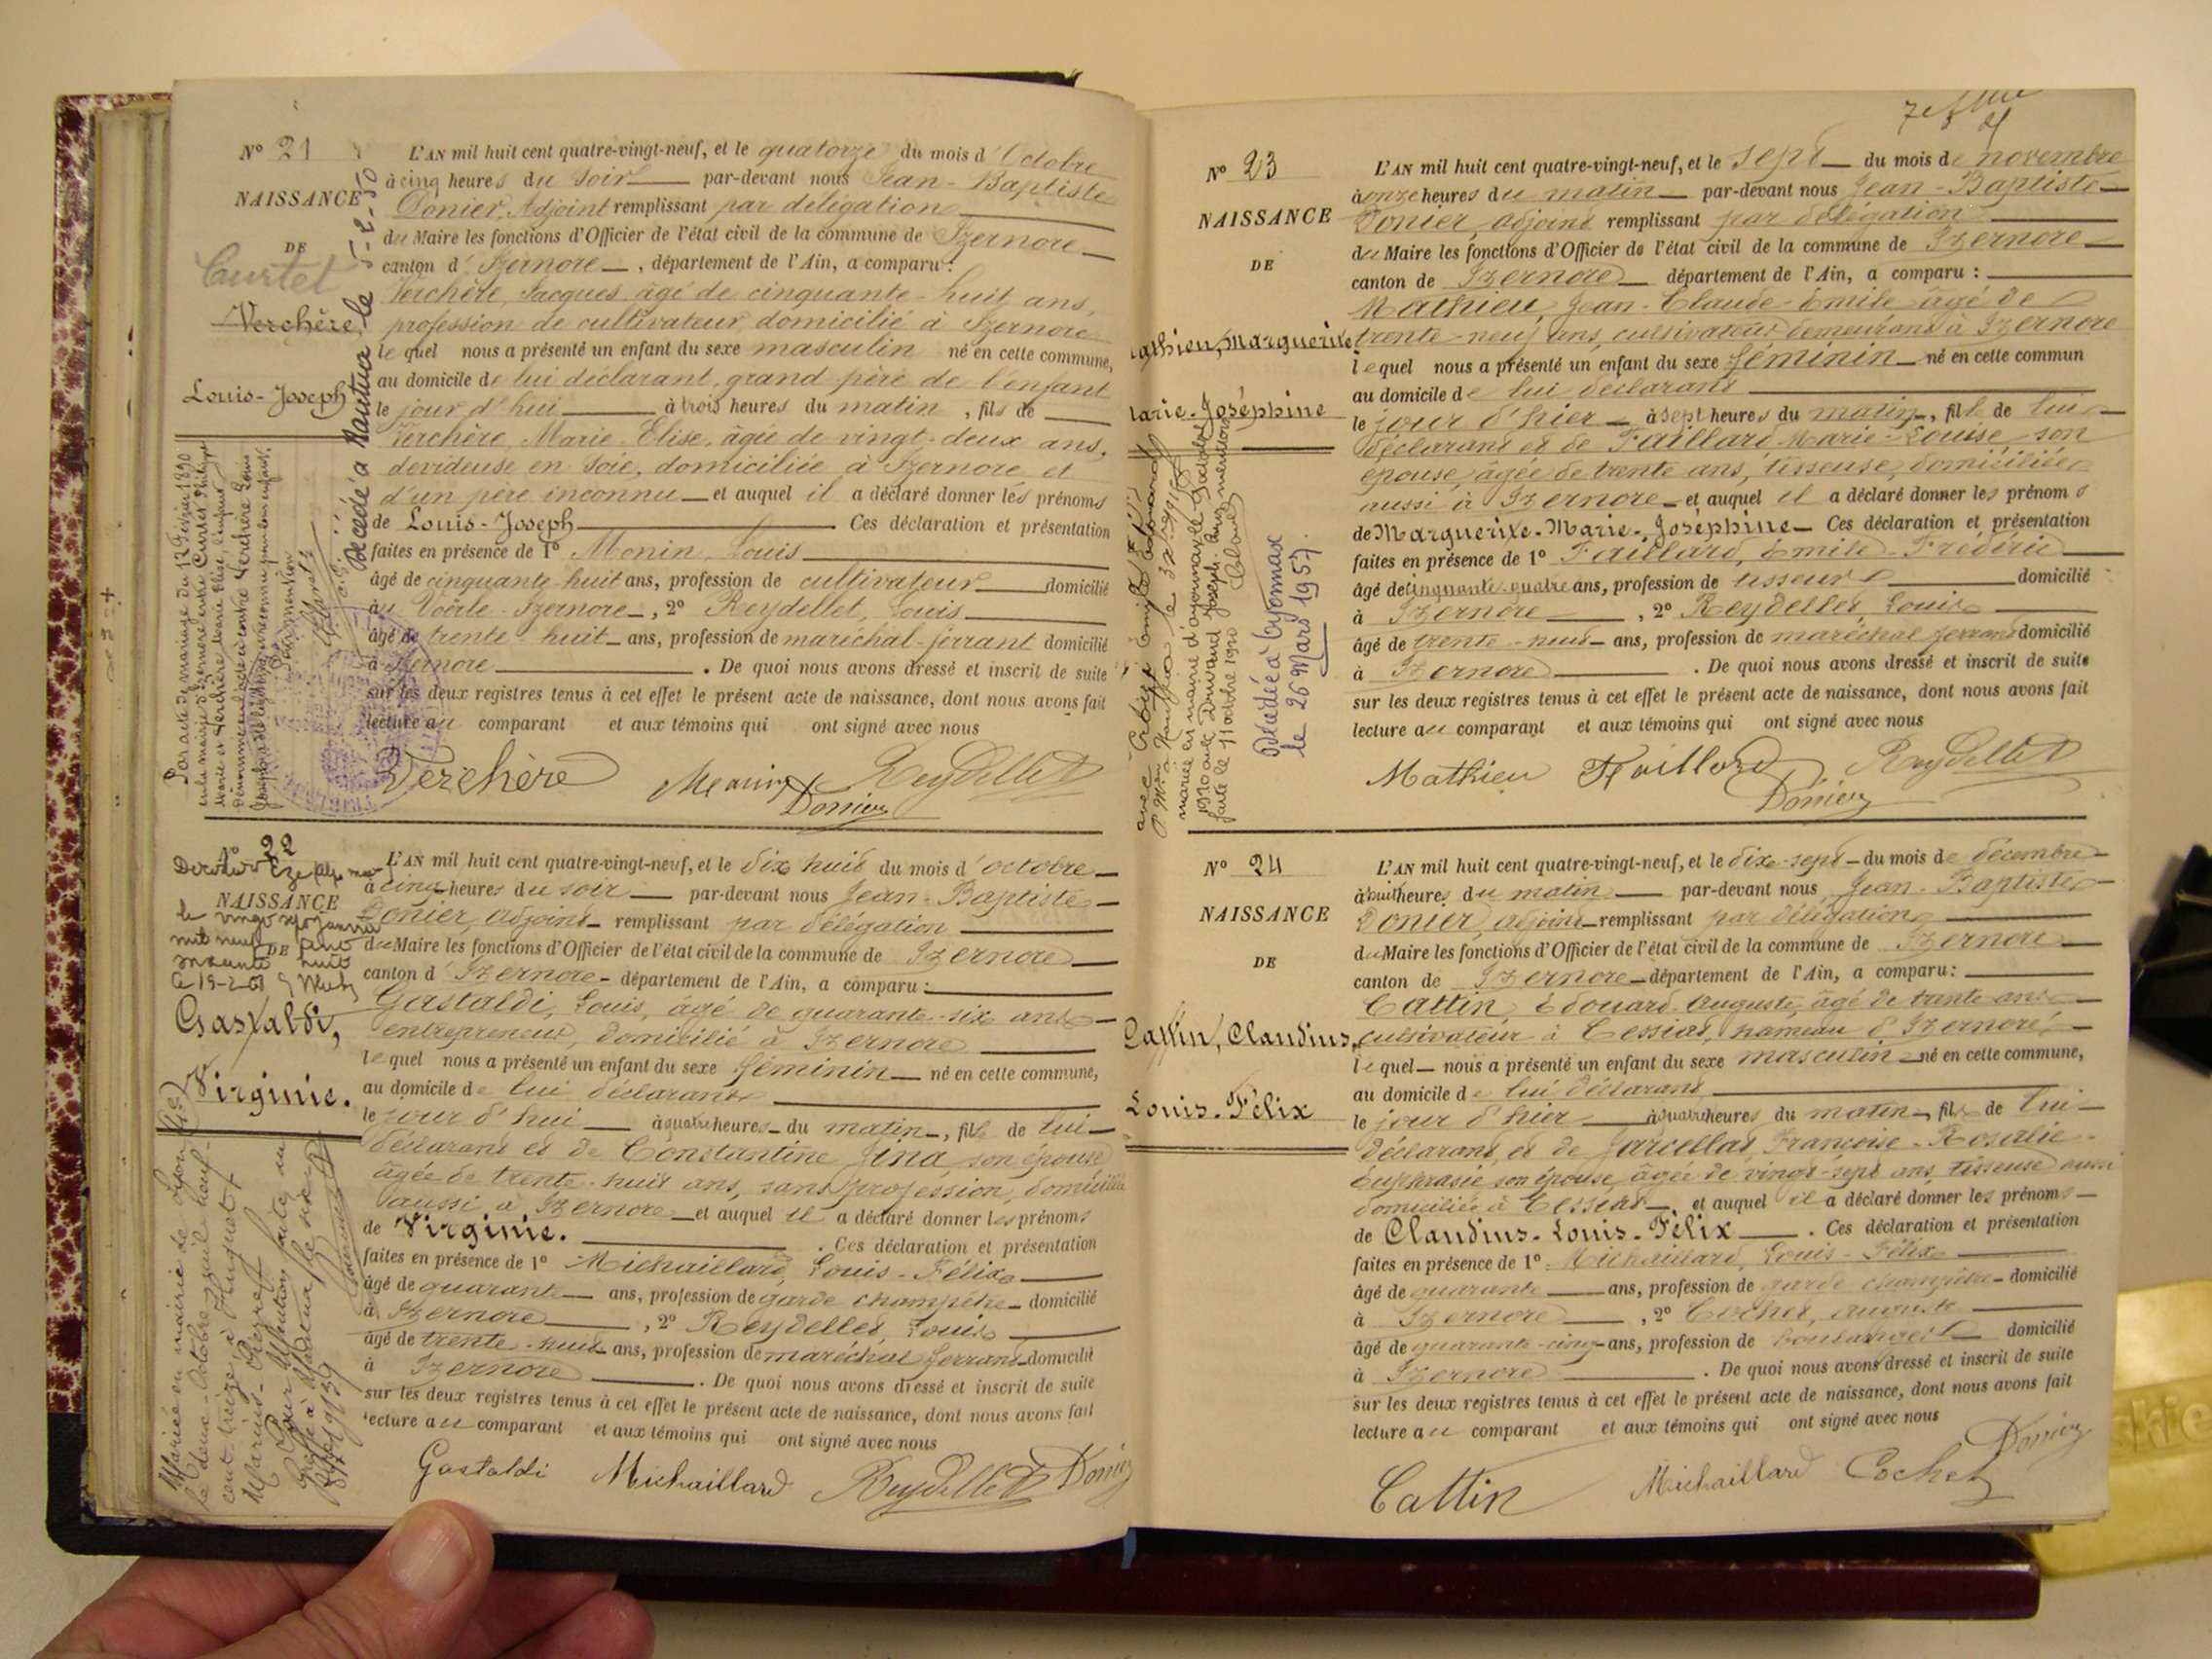 N° 21
NAISSANCE
DE
Curtet
Verchère,
Louis-Joseph
Décédé à Nantua le 5-2-50
Par acte de mariage du 12 Février 1890
L'AN mil huit cent quatre-vingt-neuf, et le quatorze du mois d'Octobre
à cinq heures du soir par-devant nous Jean-Baptiste
Donier, Adjoint remplissant par délégation
du Maire les fonctions d'Officier de l'état civil de la commune de Izernore
canton d'Izernore, département de l'Ain, a comparu:
Verchère, Jacques, âgé de cinquante-huit ans,
profession de cultivateur, domicilié à Izernore
lequel nous a présenté un enfant du sexe masculin né en cette commune,
au domicile de lui déclarant, grand-père de l'enfant
le jour d'hui à trois heures du matin, fils de
Verchère, Marie-Elise, âgée de vingt-deux ans,
devideuse en soie, domiciliée à Izernore et
d'un père inconnu et auquel il a déclaré donner les prénoms
de Louis-Joseph Ces déclaration et présentation
faites en présence de 1° Monin, Louis
âgé de cinquante-huit ans, profession de cultivateur domicilié
au Voërle-Izernore, 2° Reydellet, Louis
âgé de trente-huit ans, profession de maréchal-ferrant domicilié
à Izernore. De quoi nous avons dressé et inscrit de suite
sur les deux registres tenus à cet effet le présent acte de naissance, dont nous avons fait
lecture au comparant et aux témoins qui ont signé avec nous
Verchère Monin Reydellet
Donier
N° 22
NAISSANCE
DE
Gastaldi,
Virginie.
Mariée en mairie de Lyon
le deux Octobre mil neuf
cent treize à Huguet
L'AN mil huit cent quatre-vingt-neuf, et le dix huit du mois d'octobre
à cinq heures du soir par-devant nous Jean-Baptiste
Donier, adjoint remplissant par délégation
du Maire les fonctions d'Officier de l'état civil de la commune de Izernore
canton d'Izernore département de l'Ain, a comparu:
Gastaldi, Louis, âgé de quarante-six ans
entrepreneur, domicilié à Izernore
lequel nous a présenté un enfant du sexe féminin né en cette commune,
au domicile de lui déclarant
le jour d'hui à quatre heures du matin, fille de lui
déclarant et de Constantine Jina, son épouse
âgée de trente-huit ans, sans profession, domiciliée
aussi à Izernore et auquel il a déclaré donner les prénoms
de Virginie. Ces déclaration et présentation
faites en présence de 1° Michaillard, Louis-Félix
âgé de quarante ans, profession de garde champêtre domicilié
à Izernore, 2° Reydellet, Louis
âgé de trente-huit ans, profession de maréchal ferrant domicilié
à Izernore. De quoi nous avons dressé et inscrit de suite
sur les deux registres tenus à cet effet le présent acte de naissance, dont nous avons fait
lecture au comparant et aux témoins qui ont signé avec nous
Gastaldi Michaillard Reydellet Donier
N° 23
NAISSANCE
DE
athieu, Marguerite
Marie-Joséphine
Décédée à Oyonnax
le 26 Mars 1957.
L'AN mil huit cent quatre-vingt-neuf, et le sept du mois de novembre
à onze heures du matin par-devant nous Jean-Baptiste
Donier, adjoint remplissant par délégation
du Maire les fonctions d'Officier de l'état civil de la commune de Izernore
canton de Izernore département de l'Ain, a comparu:
Mathieu, Jean-Claude-Emile âgé de
trente-neuf ans, cultivateur demeurant à Izernore
lequel nous a présenté un enfant du sexe féminin né en cette commun
au domicile de lui déclarant
le jour d'hier à sept heures du matin, fille de lui
déclarant et de Faillard Marie-Louise son
épouse, âgée de trente ans, tisseuse, domiciliée
aussi à Izernore et auquel il a déclaré donner les prénoms
de Marguerite-Marie-Joséphine Ces déclaration et présentation
faites en présence de 1° Faillard, Emile-Frédéric
âgé de cinquante-quatre ans, profession de tisseur domicilié
à Izernore, 2° Reydellet, Louis
âgé de trente-huit ans, profession de maréchal ferrant domicilié
à Izernore. De quoi nous avons dressé et inscrit de suite
sur les deux registres tenus à cet effet le présent acte de naissance, dont nous avons fait
lecture au comparant et aux témoins qui ont signé avec nous
Mathieu Faillard Reydellet
Donier
N° 24
NAISSANCE
DE
Cattin, Claudius,
Louis-Félix
L'AN mil huit cent quatre-vingt-neuf, et le dix-sept du mois de décembre
à huit heures du matin par-devant nous Jean-Baptiste
Donier, adjoint remplissant par délégation
du Maire les fonctions d'Officier de l'état civil de la commune de Izernore
canton de Izernore département de l'Ain, a comparu:
Cattin, Edouard-Auguste, âgé de trente ans
cultivateur à Cessiat, hameau d'Izernore,
lequel nous a présenté un enfant du sexe masculin né en cette commune,
au domicile de lui déclarant
le jour d'hier à quatre heures du matin, fils de lui
déclarant, et de Jarcellat, Françoise-Rosalie-
Euphrasie son épouse, âgée de vingt-sept ans, tisseuse aussi
domiciliée à Cessiat, et auquel il a déclaré donner les prénoms
de Claudius-Louis-Félix. Ces déclaration et présentation
faites en présence de 1° Michaillard, Louis-Félix
âgé de quarante ans, profession de garde champêtre domicilié
à Izernore, 2° Cochet, Auguste
âgé de quarante-cinq ans, profession de boulanger domicilié
à Izernore. De quoi nous avons dressé et inscrit de suite
sur les deux registres tenus à cet effet le présent acte de naissance, dont nous avons fait
lecture au comparant et aux témoins qui ont signé avec nous
Cattin Michaillard Cochet Donier